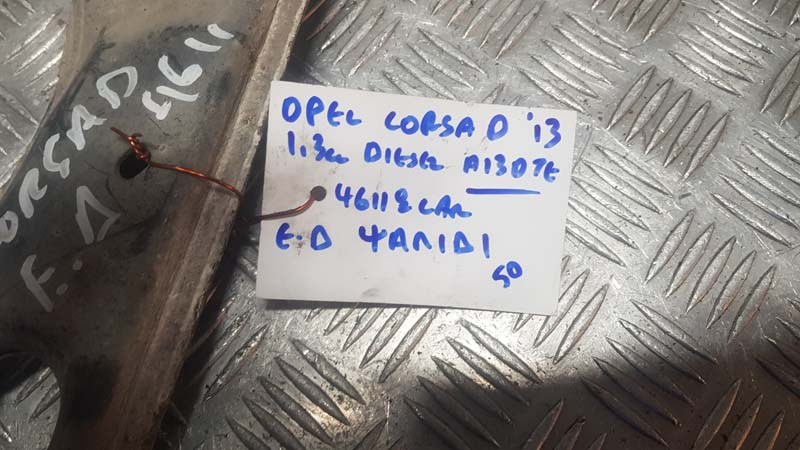 OPEL CORSA D '13
1.3cc DIESEL A13DTE
46118 CAR
E.D ΨΑΛΙΔΙ
50
CORSA D
4611
E.Δ